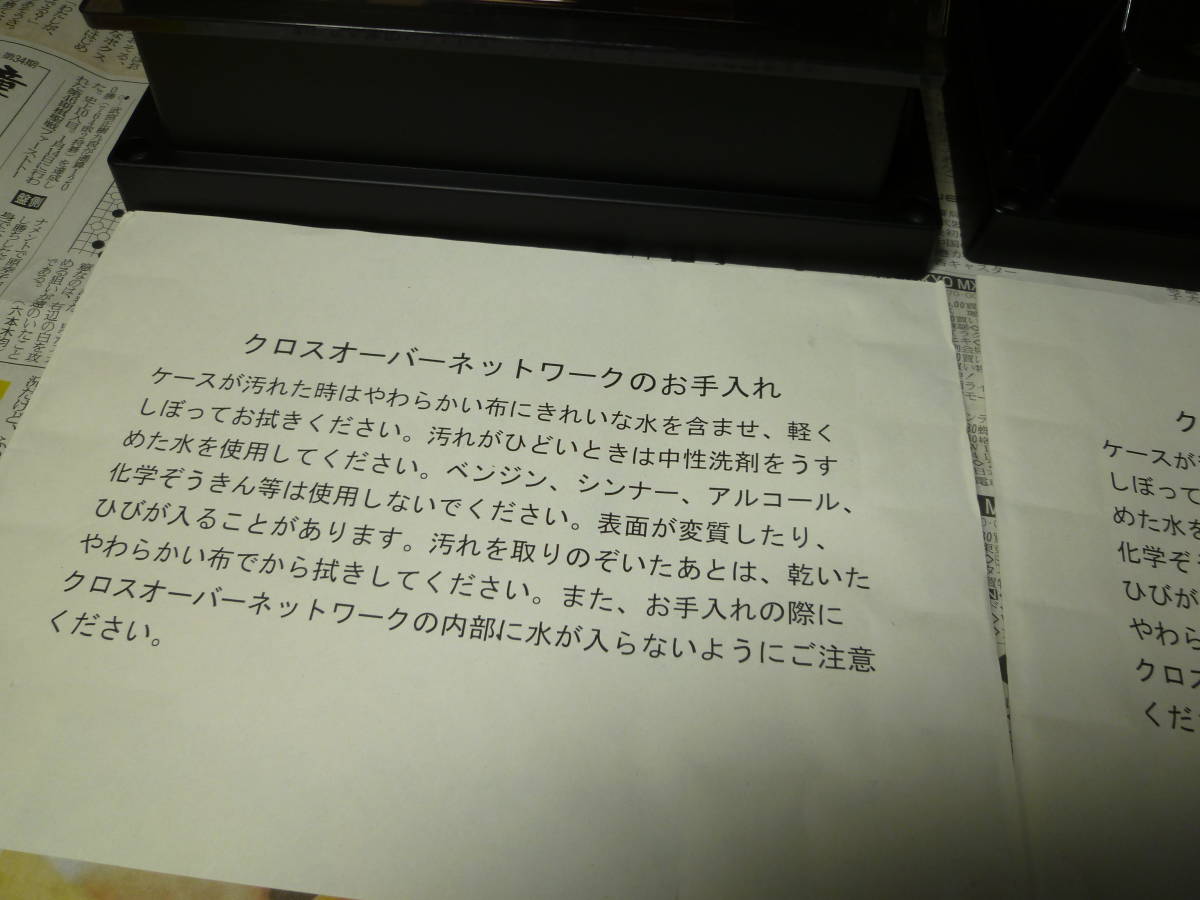 クロスオーバーネットワークのお手入れ
ケースが汚れた時はやわらかい布にきれいな水を含ませ、軽く
しぼってお拭きください。汚れがひどいときは中性洗剤をうす
めた水を使用してください。ベンジン、シンナー、アルコール、
化学ぞうきん等は使用しないでください。表面が変質したり、
ひびが入ることがあります。汚れを取りのぞいたあとは、乾いた
やわらかい布でから拭きしてください。また、お手入れの際に
クロスオーバーネットワークの内部に水が入らないようにご注意
ください。
ク
ケースが
しぼって
めた水を
化学ぞ
ひびが
やわら
クロス
くだ
第34期
盤側
キャスター